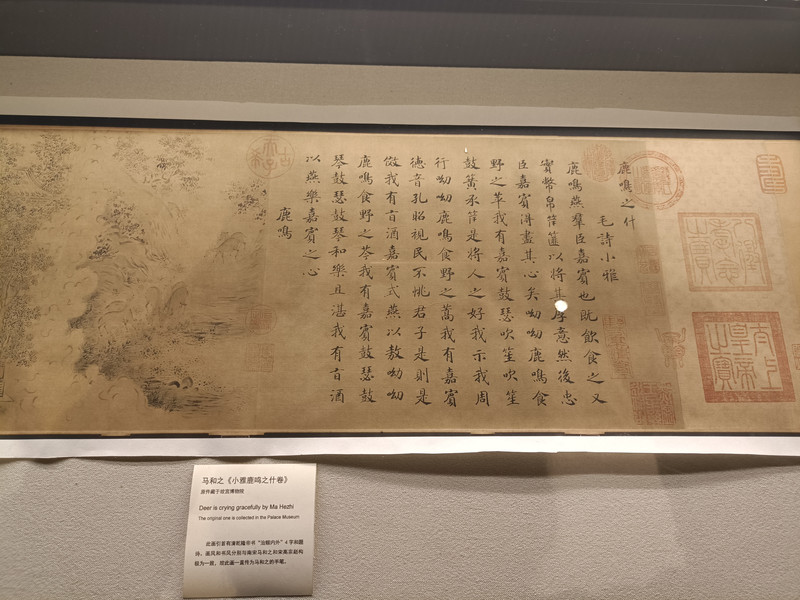 太上皇帝之寶
鹿鳴之什
毛詩小雅
鹿鳴燕羣臣嘉賓也既飲食之又
實幣帛筐篚以將其厚意然後忠
臣嘉賓得盡其心矣呦呦鹿鳴食
野之苹我有嘉賓鼓瑟吹笙吹笙
鼓簧承筐是將人之好我示我周
行呦呦鹿鳴食野之蒿我有嘉賓
德音孔昭視民不恌君子是則是
傚我有旨酒嘉賓式燕以敖呦呦
鹿鳴食野之芩我有嘉賓鼓瑟鼓
琴鼓瑟鼓琴和樂且湛我有旨酒
以燕樂嘉賓之心
鹿鳴
马和之《小雅鹿鸣之什卷》
原件藏于故宫博物院
Deer is crying gracefully by Ma Hezhi
The original one is collected in the Palace Museum
此画引首有清乾隆帝书“治赅内外”4字和题
诗。画风和书风分别与南宋马和之和宋高宗赵构
极为一致，故此画一直传为马和之的手笔。